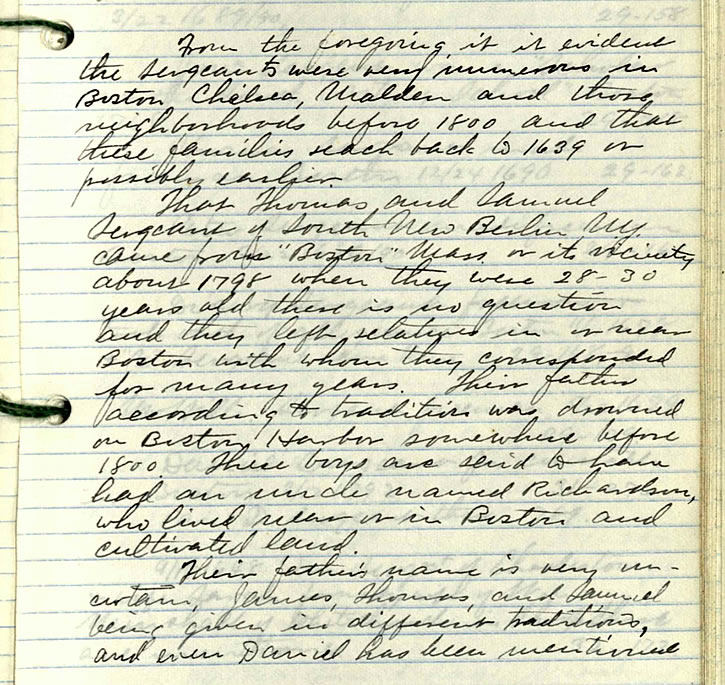 From the foregoing, it is evident
the Sergeants were very numerous in
Boston Chelsea, Malden and those
neighborhoods before 1800 and that
these families reach back to 1639 or
possibly earlier.
That Thomas and Samuel
Sergeant of South New Berlin NY.
came from "Boston" Mass. or its vicinity
about 1798 when they were 28-30
years old there is no question
and they left relatives in or near
Boston with whom they corresponded
for many years. Their father
according to tradition was drowned
on Boston Harbor somewhere before
1800 These boys are said to have
had an uncle named Richardson,
who lived near or in Boston and
cultivated land.
Their father's name is very un-
certain, James, Thomas, and Samuel
being given in different traditions,
and even Daniel has been mentioned